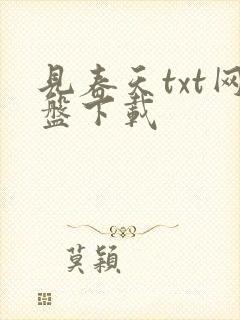 見春天txt网
盤下載
莫穎